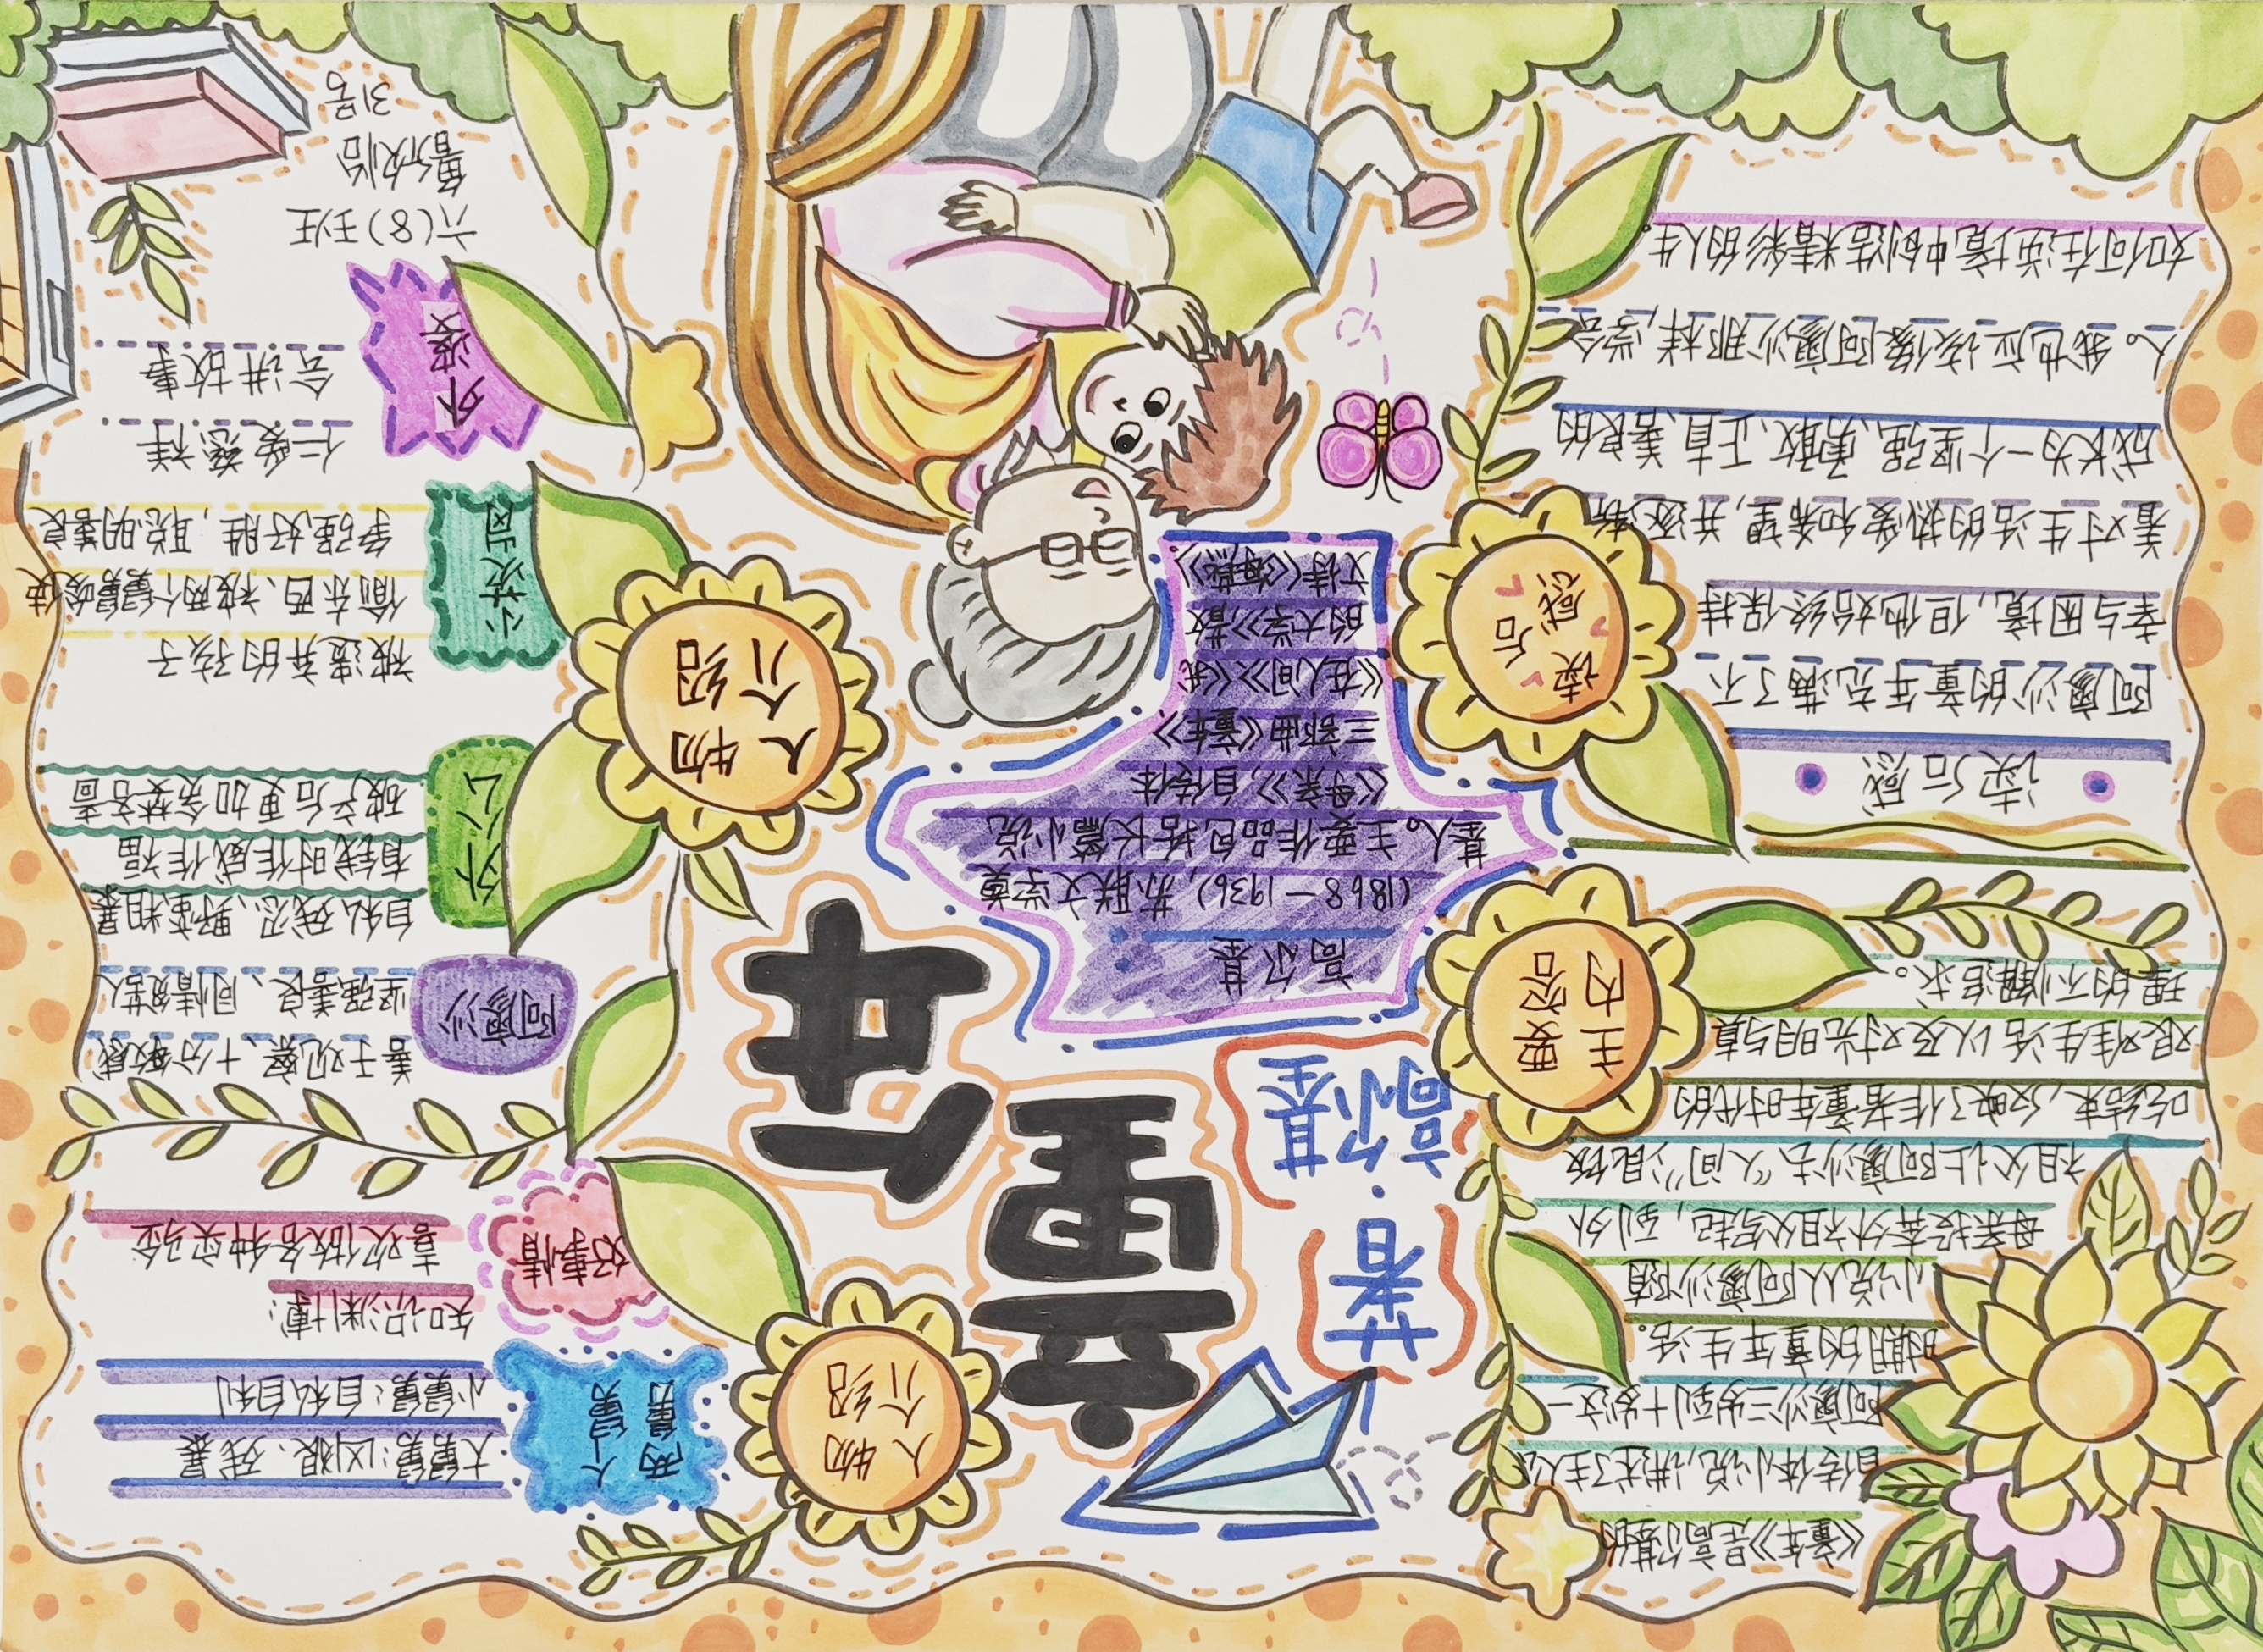 《童年》是高尔基的
自传体小说,讲述了主人公
阿廖沙三岁到十岁这一
时期的童年生活。
小说从阿廖沙随
母亲投奔外祖父写起,到外
祖父让阿廖沙去“人间”混饭
吃结束,反映了作者童年时代的
艰难生活以及对光明与真
理的不懈追求。
主内
要容
读后感
阿廖沙的童年充满了不
幸与困境,但他始终保持
着对生活的热爱和希望,并逐渐
成长为一个坚强、勇敢、正直、善良的
人。我也应该像阿廖沙那样,学会
如何在逆境中创造精彩的人生。
读后感
童年
著:
高尔基
高尔基
(1868—1936),苏联文学奠
基人。主要作品包括长篇小说
《母亲》,自传体
三部曲《童年》
《在人间》《我
的大学》散
文诗《海燕》。
人物
介绍
两个
舅舅
大舅舅:凶狠、残暴
小舅舅:自私自利
好事情
知识渊博;
喜欢做各种实验
人物
介绍
阿廖沙
善于观察、十分敏感
坚强善良、同情穷人
外公
自私、残忍、野蛮粗暴
有钱时作威作福
破产后更加贪婪吝啬
小茨冈
被遗弃的孩子
偷东西、被两个舅舅唆使
争强好胜,聪明善良
外婆
仁爱慈祥
会讲故事
六(8)班
鲁欣怡
31号